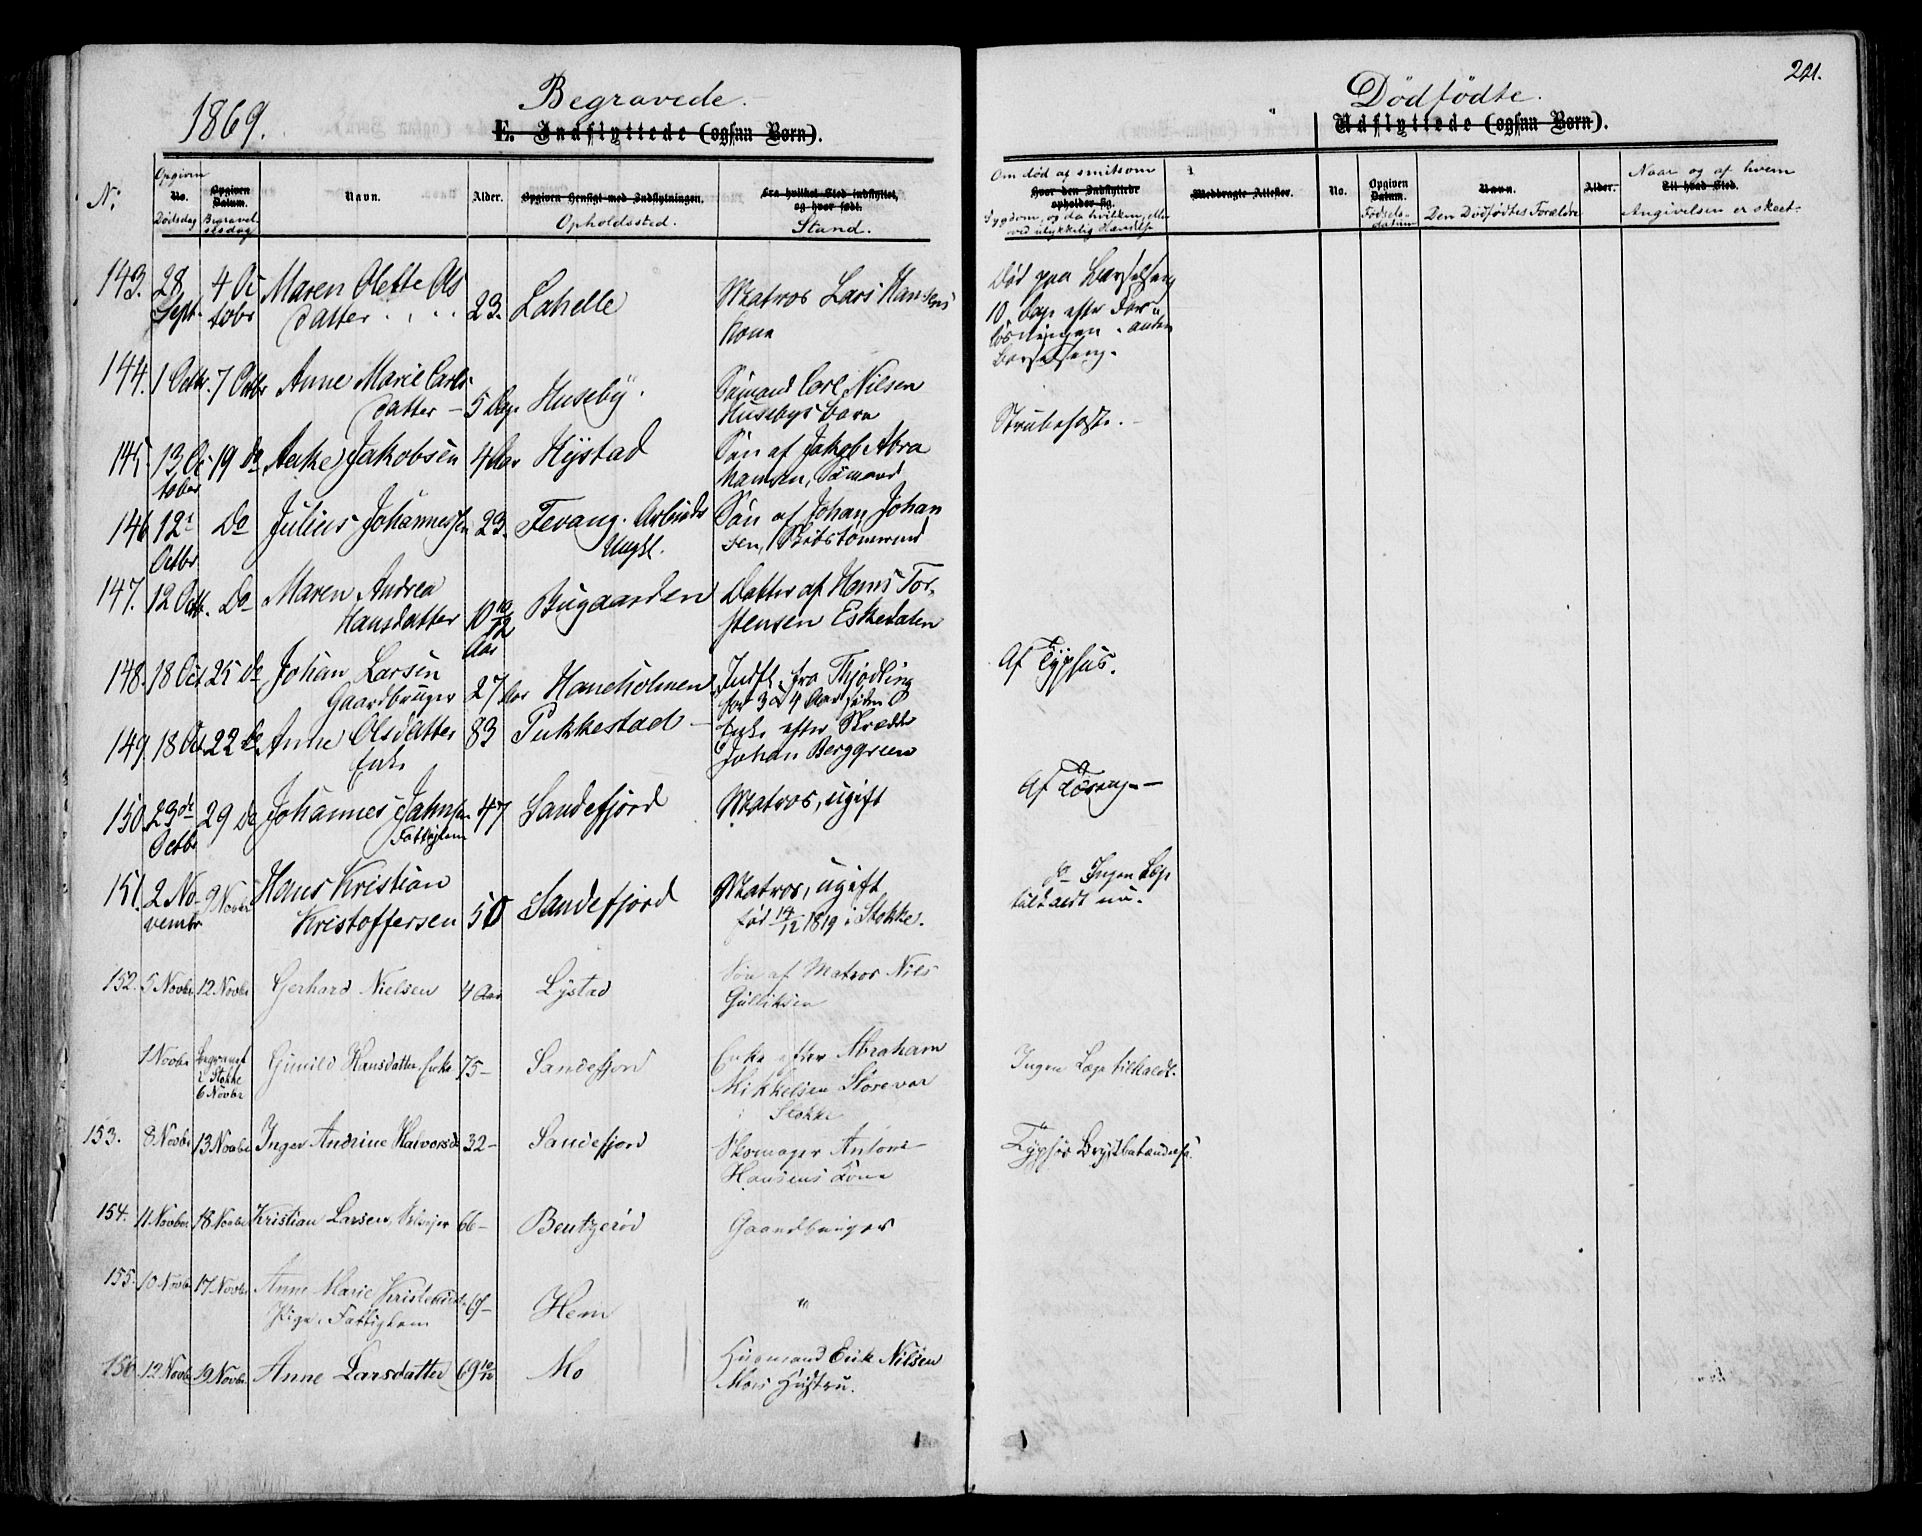 1869.
Begravede.
E. Indflyttede (ogsaa Børn).
Dødfødte.
221.
Udflyttede (ogsaa Børn).
No:
Opgiven
No.
Dødsdag
Opgiven Datum.
Begravelsesdag
Navn.
Alder.
Opgiven Hensigt med Indflytningen.
Opholdssted.
Fra hvilket Sted indflyttet, og hvor født.
Stand.
Om død af smitsom
Hvor den Indflyttede opholder sig.
Sygdom, og da hvilken, eller
ved ulykkelig Hændelse
Medbragte Attester.
No.
Opgiven Datum.
Fødsels-
datum
Navn.
Den Dødfødtes Forældre
Alder.
Naar og af hvem
Til hvad Sted.
Angivelsen er skeet.
143. 28 Sept. 4 Octobr Maren Olette Olsdatter 23. Lahelle Matros Lars Hansens Kone
Død paa Barselseng
10 Dage efter Forløsningen - anden
Barselseng.
144. 1 Octbr. 7 Octbr Anne Marie Carlsdatter - 5 Dage Huseby. Sømand Carl Nilsen
Husebys barn
Strubehoste.
145. 13 October 19 do Anke Jakobsen 4 Aar Hystad Søn af Jakob Abrahamsen, Sømand
146 12t Octbr Do Julius Johannessen 23. Fevang. Arbeids Ungkl. Søn af Johan Johansen, Skibstømrmd
147. 12 Octb. Do Maren Andrea
Hansdatter 10 10/12 Aar Bugaarden Datter af Hans Torstensen Eskedalen
148. 18 Oct 25 do Johan Larsen
Gaardbruger 27 Aar Haneholmen Indfl. fra Thjødling
for 3 a 4 Aar siden
Af Typhus.
149. 18 Oct 22 do Anne Olsdatter
Enke 83 Pukkestad - Enke efter Skrædder
Johan Berggreen
150. 23de Octbr 29 Do Johannes Jahnsen
Fattiglem 47 Sandefjord Matros, ugift
Af Tæring -
151. 2 Novembr 9 Novbr Hans Kristian
Kristoffersen 50 Sandefjord Matros, ugift
født 14/12 1819 i Stokke.
do Ingen Læge
tilkaldt nu.
152. 5 Novbr 12. Novbr Gerhard Nielsen 4 Aar Lystad Søn af Matros Nils
Gulliksen
1 Novbr Begravet
i Stokke
6 Novbr Gunild Hansdatter, Enke 75 - Sandefjord Enke efter Abraham
Mikkelsen Storevar
i Stokke
Ingen Læge tilkaldt.
153. 8 Novbr 13 Novbr Inger Andrine Halvorsd. 32 - Sandefjord Skomager Antons
Hansens Kone
Typhøs Brystbetændelse
154. 11 Novbr 18 Novbr Kristian Larsen, Selveier 66 - Bentzerød Gaardbruger
155. 10 Novbr 17 Novbr Anne Marie Kristensd.
Pige, Fattiglem 69 - Hem "
156 12 Novbr 19 Novbr Anne Larsdatter 69 10/12 Mo Husmand Erik Nilsen
Mois Hustru.